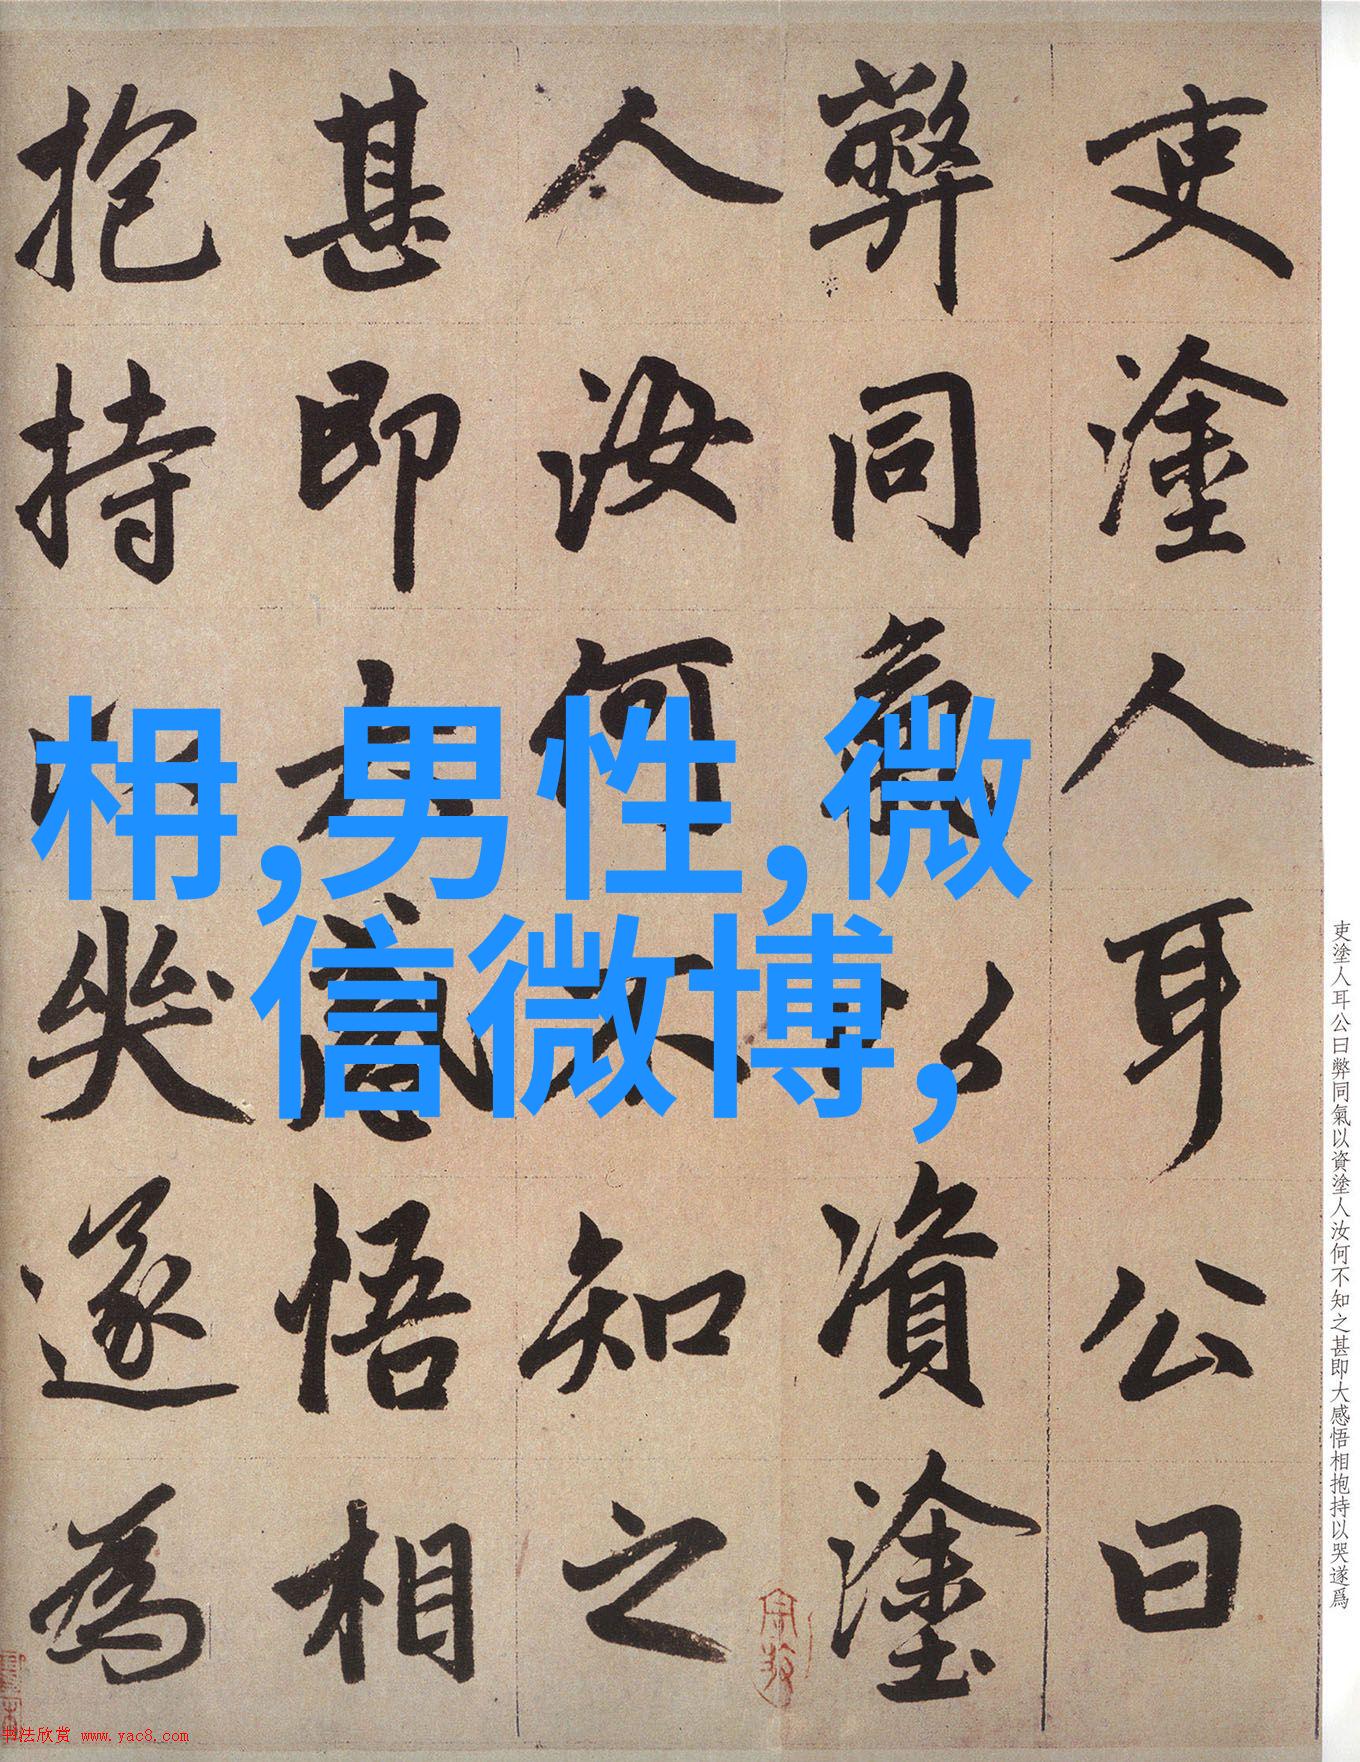 吏塗人耳公曰
弊同氣以資塗
人汝何不知之
甚即大感悟相
抱持以哭遂為
吏塗人耳公曰弊同氣以資塗人汝何不知之甚即大感悟相抱持以哭遂爲
枏,男性,微
信微博,
书法欣赏 www.yac8.com